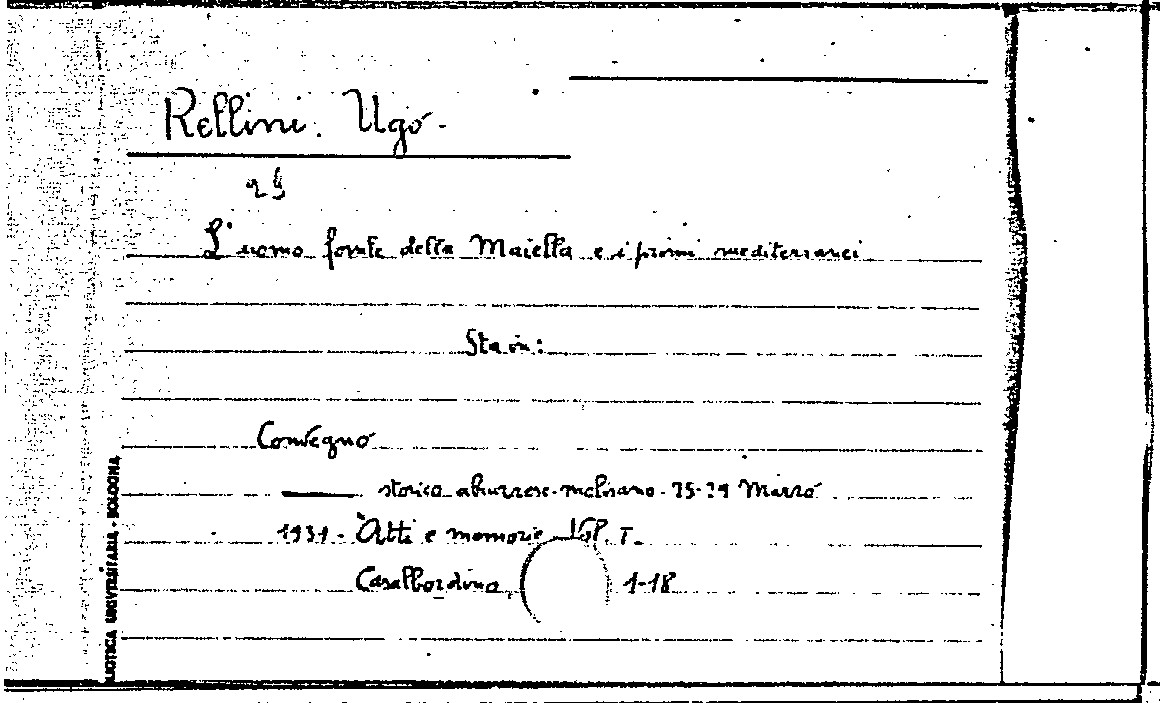 Rellini. Ugo.
L'uomo fossile della Maiella e i primi mediterranei
Sta in:
Convegno
storico abruzzese-molisano. 25-29 Marzo
1931. Atti e memorie Vol. I.
Casalbordino, 1-18
BIBLIOTECA UNIVERSITARIA - BOLOGNA